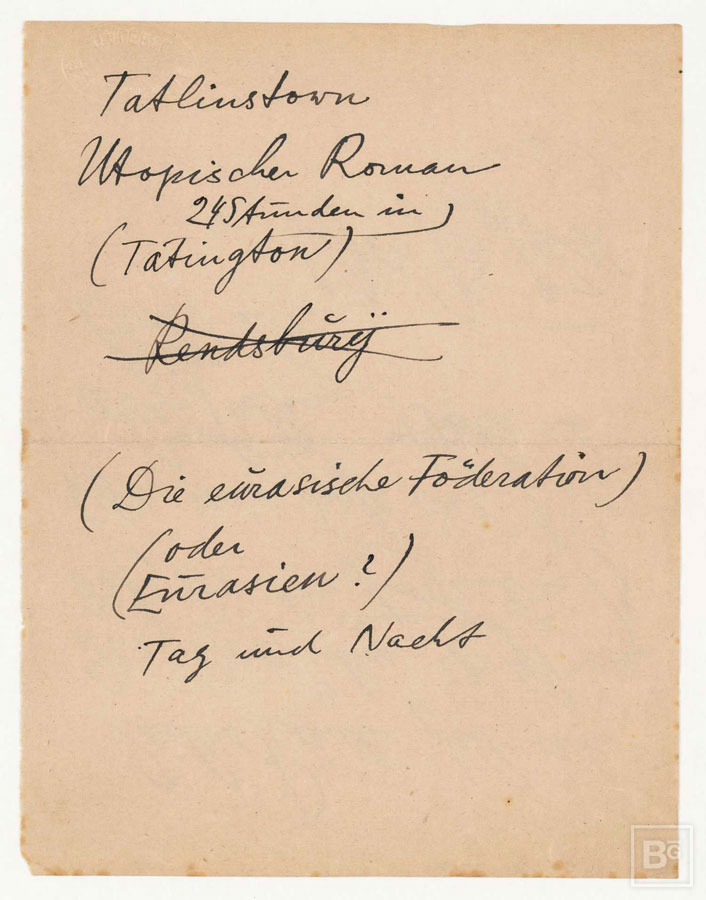 Tatlinstown
Utopischer Roman
24 Stunden in
(Tatington)
Rendsburg
(Die eurasische Föderation)
(oder
Eurasien?)
Tag und Nacht
BG